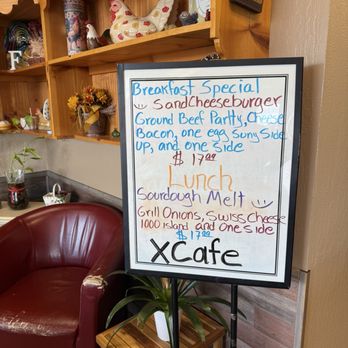 Breakfast Special
SandCheeseburger
Ground Beef Partty, Cheese
Bacon, one egg Suny Side
up, and one side
$ 17.00
Lunch
Sourdough Melt
Grill Onions, Swiss Cheese
1000 island and one Side
$ 17.00
XCafe
F